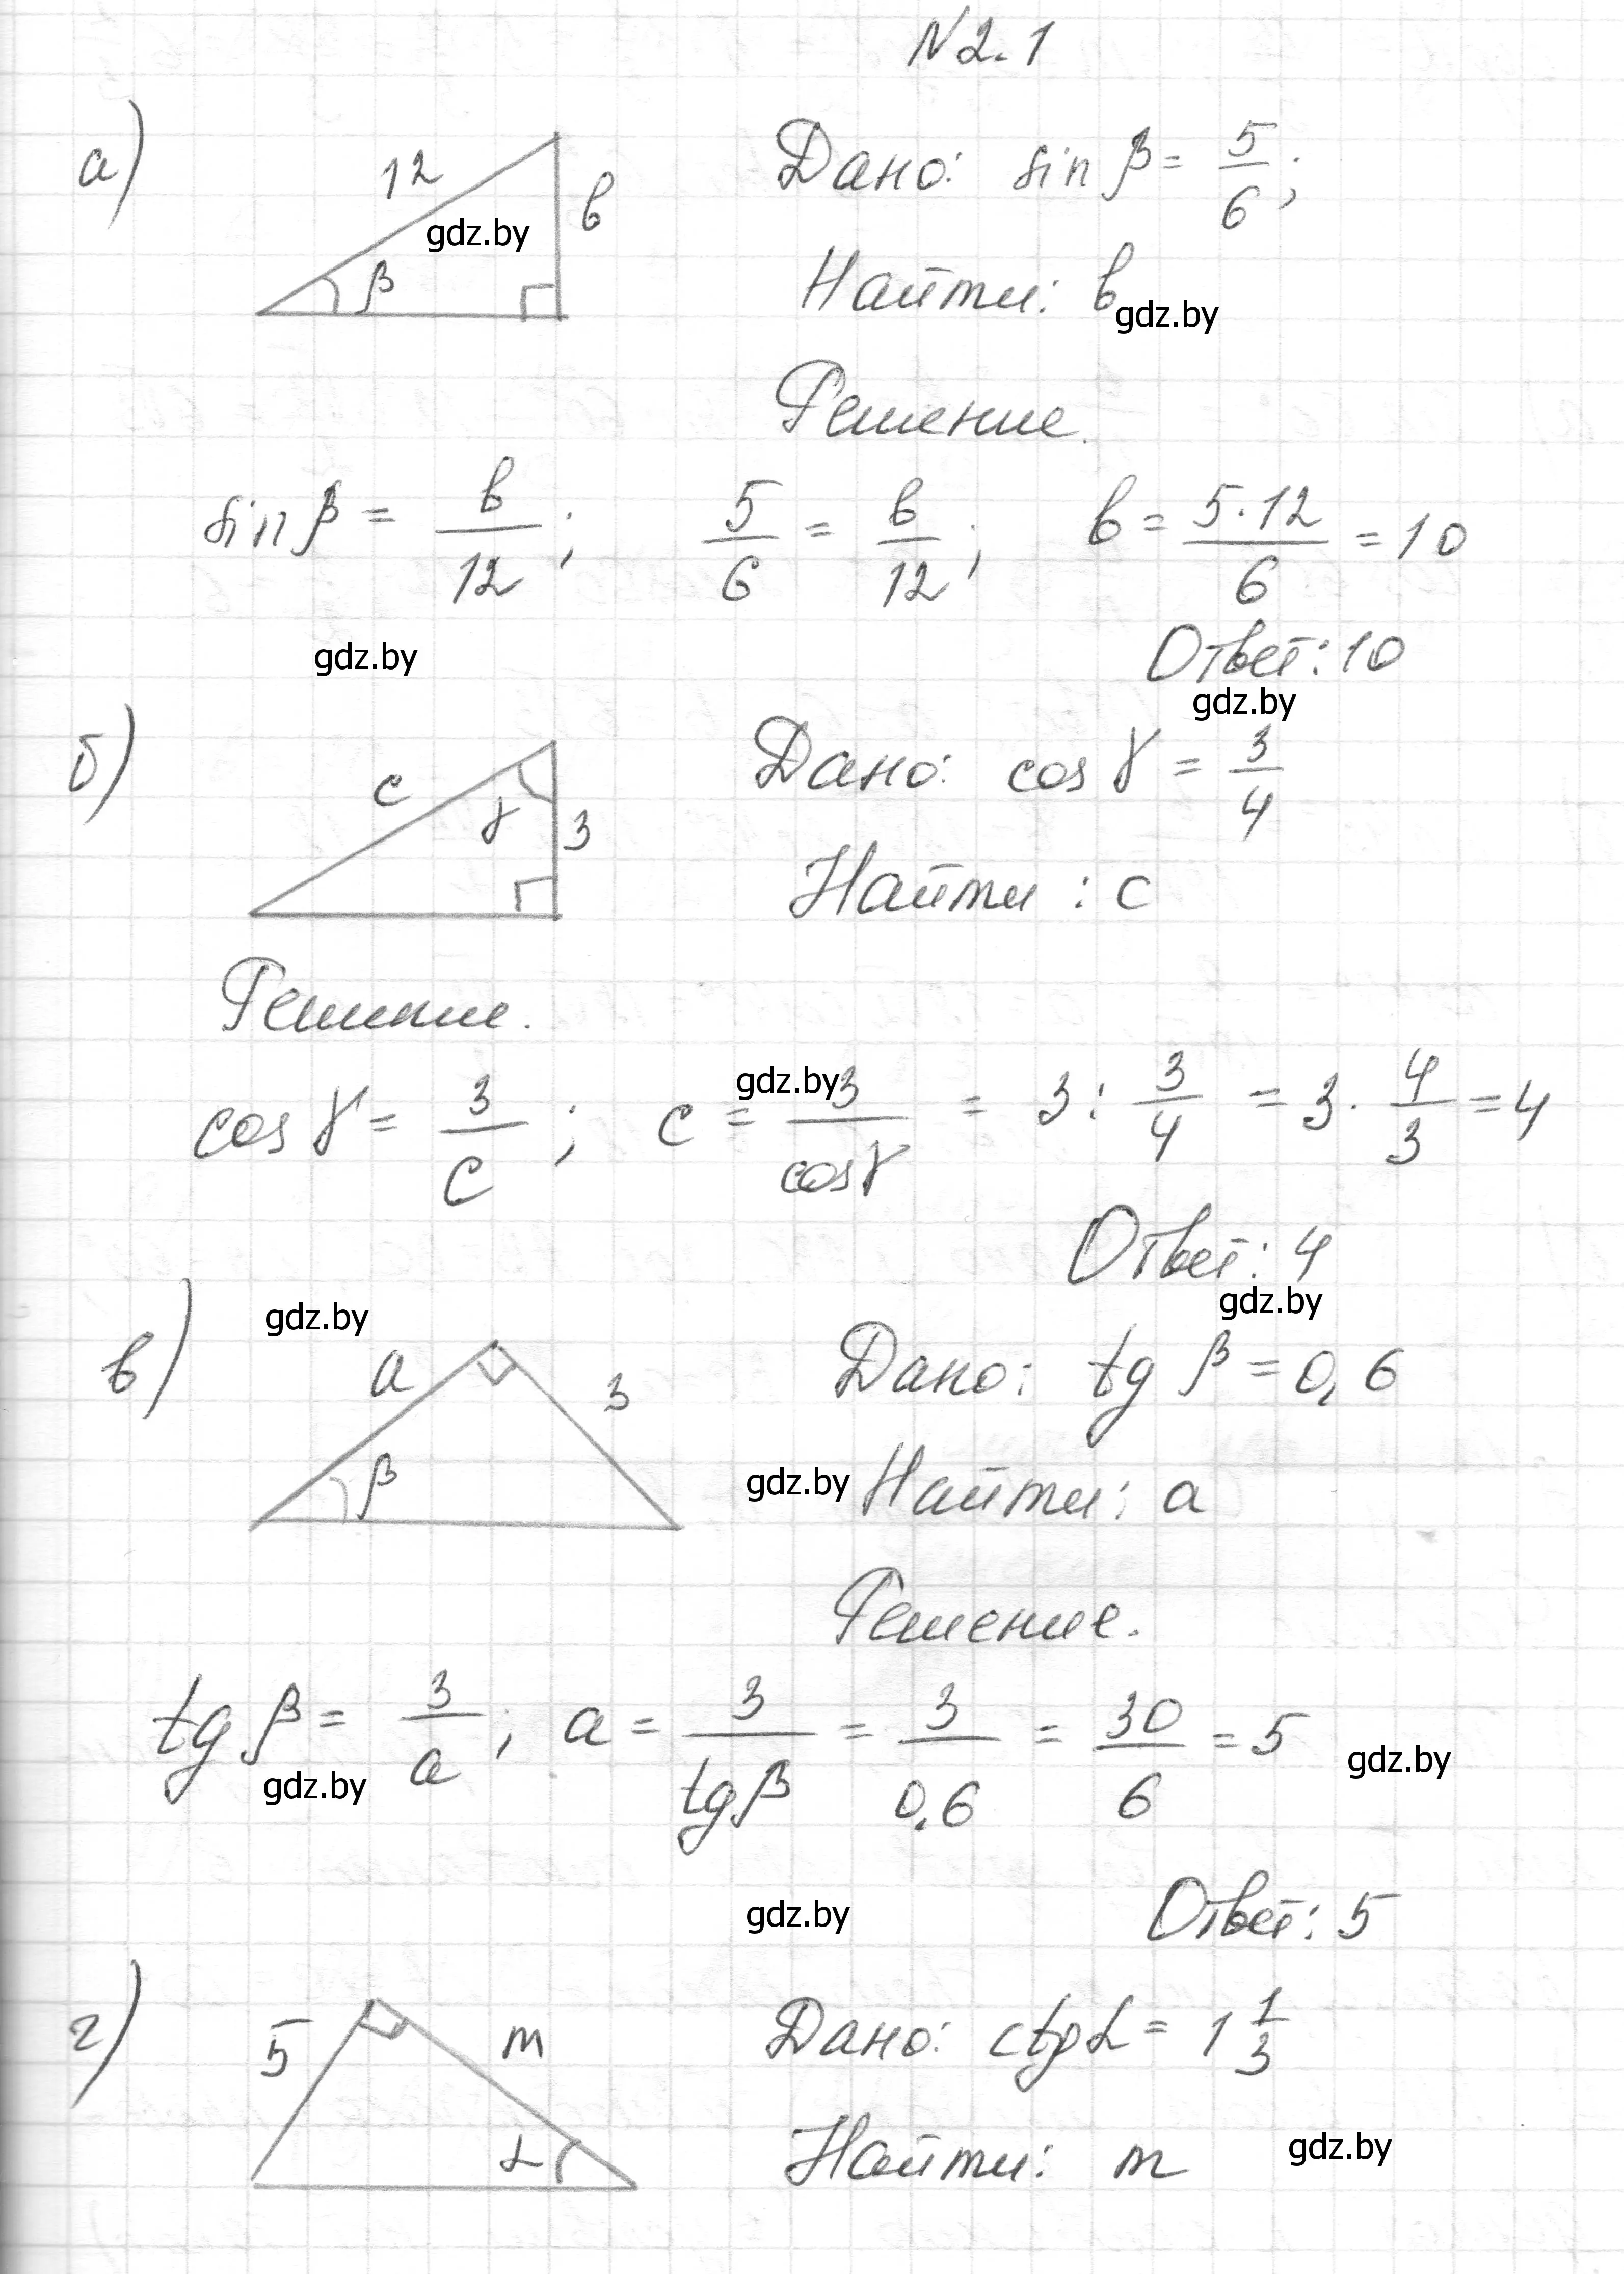 N 2.1
а)
12
b
β
gdz.by
Дано: sin β = 5/6;
Найти: b
gdz.by
Решение.
sin β = b/12; 5/6 = b/12; b = 5·12/6 = 10
Ответ: 10
gdz.by
gdz.by
б)
c
γ
3
Дано: cos γ = 3/4
Найти: c
Решение.
gdz.by
cos γ = 3/c; c = 3/cos γ = 3 : 3/4 = 3 · 4/3 = 4
Ответ: 4
gdz.by
gdz.by
в)
a
3
β
Дано: tg β = 0,6
gdz.by
Найти: a
Решение.
tg β = 3/a; a = 3/tg β = 3/0,6 = 30/6 = 5
gdz.by
gdz.by
Ответ: 5
gdz.by
г)
5
m
α
Дано: ctg α = 1 1/3
Найти: m
gdz.by